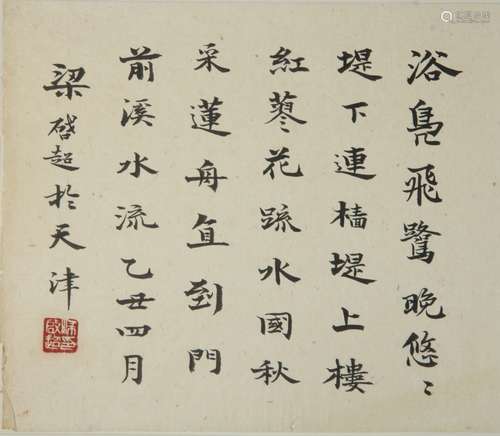 浴鳬飛鷺晚悠〻
堤下連檣堤上樓
紅蓼花疏水國秋
采蓮舟直到門
前溪水流乙丑四月
梁啓超於天津